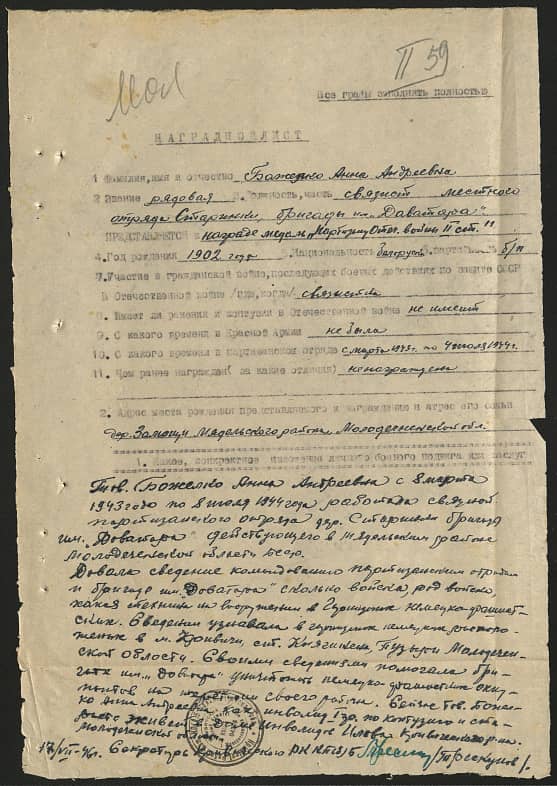 II 59
Все графы заполнять полностью
НАГРАДНОЙ ЛИСТ
1 Фамилия, имя и отчество Боженко Анна Андреевна
2 Звание рядовая 3. Должность, часть связист местного
отряда Старинки, бригады им. "Даватара".
ПРЕДСТАВЛЯЕТСЯ к награде медаль "Партизану Отеч. войны II ст."
4. Год рождения 1902 года 5. Национальность белоруска б/п
7. Участие в гражданской войне, последующих боевых действиях по защите СССР
в Отечественной войне /где, когда/ связистка
8. Имеет ли ранения и контузии в Отечественной войне не имеет
9. С какого времени в Красной Армии не была
10. С какого времени в партизанском отряде с марта 1943г. по 4 июля 1944г.
11. Чем ранее награжден( за какие отличия) ненаграждена
2. Адрес места рождения представляемого к награждению и адрес его семьи
дер. Мядельского района, Молодечненской обл.
1. Какое, конкретное изложение личного боевого подвига или заслуг
Тов. Боженко Анна Андреевна с 8 марта
1943 года по 8 июля 1944 года работала связной
партизанского отряда дер. Старинки бригады
им. "Доватора" действующего в Мядельском районе
Молодеченской области БССР.
Довала сведение командованию партизанским отрядам
и бригаде им. "Доватора" сколько войска, род войска,
какая техника на вооружении в немецко-фашист-
ских. Сведения узнавала в немецких располо-
женых в м. Кривичи, ст. Княгинин, Пузыри Молодечен-
ской области. Своими сведениями помогала бри-
гаде им. "Доватора" уничтожить немецко-фашистских окку-
пантов на своего района. Сейчас тов. Божен-
ко Анна Андреевна инвалид 1 гр. по контузии и
живет инвалидов Кривичского р-на.
Молодеченской об
17/VII-46г. Секретарь Кривичского РК КП(б)Б /Трескунов/.